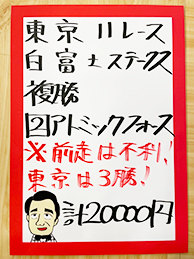 東京11レース
白富士ステークス
複勝
②アドミックフォース
※前走は不利!
東京は3勝!
計20000円